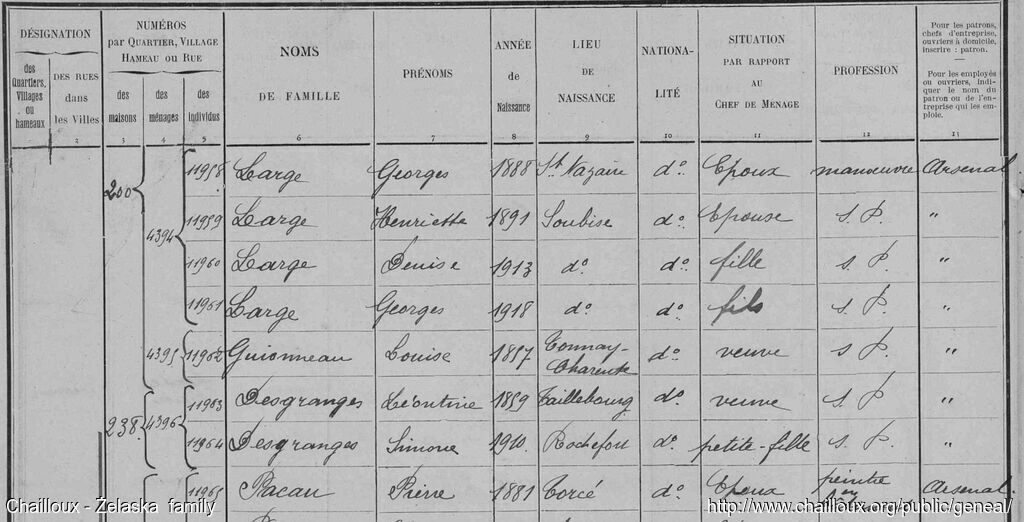 DÉSIGNATION
des Quartiers, Villages ou hameaux
DES RUES dans les Villes
2
NUMÉROS
par QUARTIER, VILLAGE
HAMEAU OU RUE
des maisons
3
des ménages
4
des individus
5
NOMS
DE FAMILLE
6
PRÉNOMS
7
ANNÉE
de
Naissance
8
LIEU
DE
NAISSANCE
9
NATIONA-
LITÉ
10
SITUATION
PAR RAPPORT
AU
CHEF DE MÉNAGE
11
PROFESSION
12
Pour les patrons,
chefs d'entreprise,
ouvriers à domicile,
inscrire : patron.
Pour les employés
ou ouvriers, indi-
quer le nom du
patron ou de l'en-
treprise qui les em-
ploie.
13
200 11958 Large Georges 1888 St Nazaire do Epoux manoeuvre Arsenal
4394 11959 Large Henriette 1891 Soubise do Epouse s. P. "
11960 Large Denise 1913 do do fille s. P. "
11961 Large Georges 1918 do do fils s P. "
4395 11962 Guionneau Louise 1857 Tonnay-Charente do veuve s P. "
238 4396 11963 Desgranges Léontine 1859 Taillebourg do veuve s. P. "
11964 Desgranges Simone 1910 Rochefort do petite-fille s. P. "
11965 Pacau Pierre 1881 Torcé do Epoux peintre Arsenal
Chailloux - Zelaska family
http://www.chailloux.org/public/geneal/